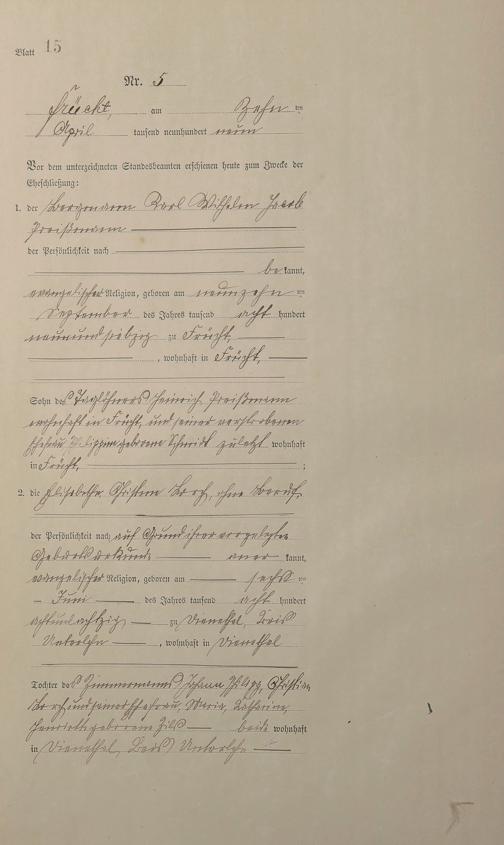 Blatt 15
Nr. 5
Frücht, am Zehn ten
April tausend neunhundert neun
Vor dem unterzeichneten Standesbeamten erschienen heute zum Zwecke der
Eheschließung:
1. der Bergmann Karl Wilhelm Jacob
Preißmann
der Persönlichkeit nach
be kannt,
evangelischer Religion, geboren am neunzehn ten
September des Jahres tausend acht hundert
neunundsiebzig zu Frücht,
, wohnhaft in Frücht,
Sohn des Taglöhners Heinrich Preißmann
wohnhaft in Frücht, und seiner verstorbenen
Ehefrau, Philippine geborene Schmidt zuletzt wohnhaft
in Frücht, ;
2. die Elisabethe Christine, ohne Beruf,
der Persönlichkeit nach auf Grund ihrer vorgelegten
Geburtsurkunde aner kannt,
evangelischer Religion, geboren am sechs ten
Juni des Jahres tausend acht hundert
achtundachtzig zu Dienethal, Kreis
Unterlahn, wohnhaft in Dienethal
Tochter des Zimmermanns Johann Philipp, Christian
und seiner Ehefrau, Maria, Katharine,
Henriette geborene beide wohnhaft
in Dienethal, Kreis Unterlahn